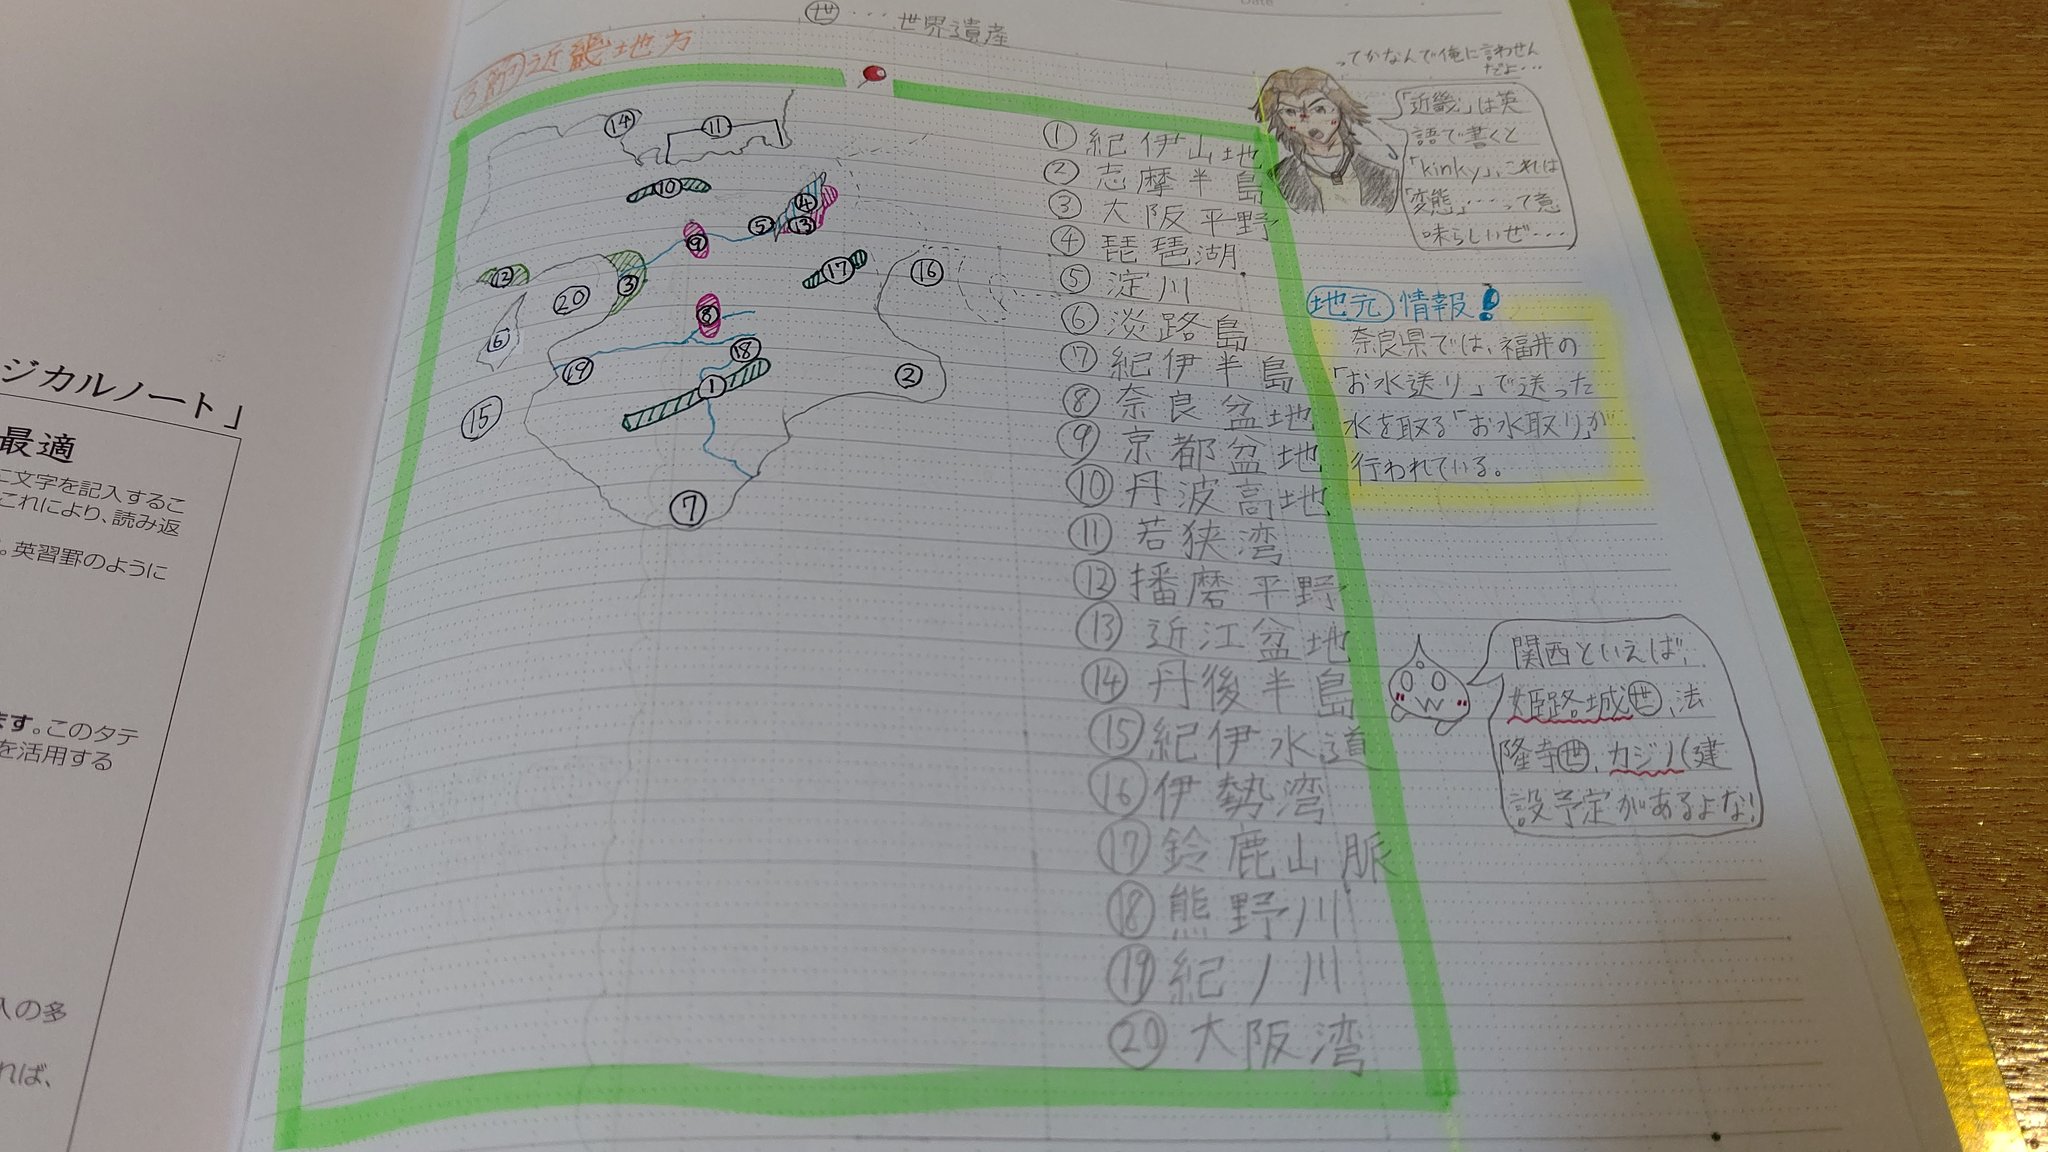 世・・・世界遺産
3節 近畿地方
ってかなんで俺に言わせん
だよ・・・
「近畿」は英
語で書くと
「kinky」、これは
「変態」・・・って意
味らしいぜ・・・
14
11
10
4
5
13
9
12
3
17
16
20
6
8
18
19
1
2
15
7
① 紀伊山地
② 志摩半島
③ 大阪平野
④ 琵琶湖
⑤ 淀川
⑥ 淡路島
⑦ 紀伊半島
⑧ 奈良盆地
⑨ 京都盆地
⑩ 丹波高地
⑪ 若狭湾
⑫ 播磨平野
⑬ 近江盆地
⑭ 丹後半島
⑮ 紀伊水道
⑯ 伊勢湾
⑰ 鈴鹿山脈
⑱ 熊野川
⑲ 紀ノ川
⑳ 大阪湾
地元情報!
奈良県では、福井の
「お水送り」で送った
水を取る「お水取り」が
行われている。
関西といえば、
姫路城世、法
隆寺世、カジノ(建
設予定があるよな!
ジカルノート」
最適
に文字を記入するこ
これにより、読み返
。英習罫のように
ます。このタテ
を活用する
入の多
れば、